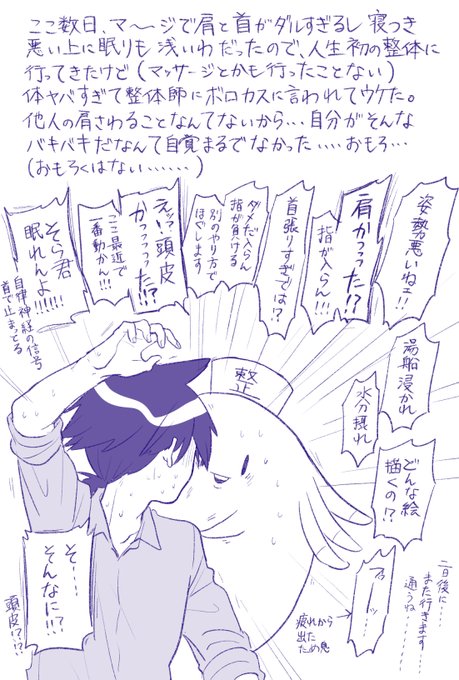 ここ数日、マ〜〜ジで肩と首がダルすぎるし 寝つき
悪い上に眠りも 浅いわ だったので、人生初の整体に
行ってきたけど(マッサージとかも行ったことない)
体ヤバすぎて整体師にボロカスに言われてウケた。
他人の肩さわることなんてないから…自分がそんな
バキバキだなんて自覚まるでなかった ‥‥おもろ…
(おもろくはない……)
姿勢悪いねェ!!
肩かっっった!?
指が入らん!!!
首張りすぎでは!?
ダメだ入らん
指が負ける
別のやり方で
ほぐします
えッッ?頭皮
かっっっった!?
ここ最近で
一番動かん!!!
そら君
眠れんよ!!!!!!
自律神経の信号
首で止まってる
湯船浸かれ
水分摂れ
どんな絵
描くの!?
整
フゥーッ…
疲れから
出た
ため息
二日後に…
また行きます…
通うね……
そ…
そんなに!?!!
頭皮!?!?